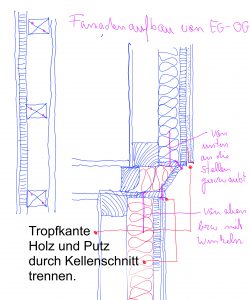 Fassadenaufbau von EG-OG
von
unten
an die
Stellen
geschraubt
von oben
bzw mit
Winkeln
Tropfkante
Holz und Putz
durch Kellenschnitt
trennen.